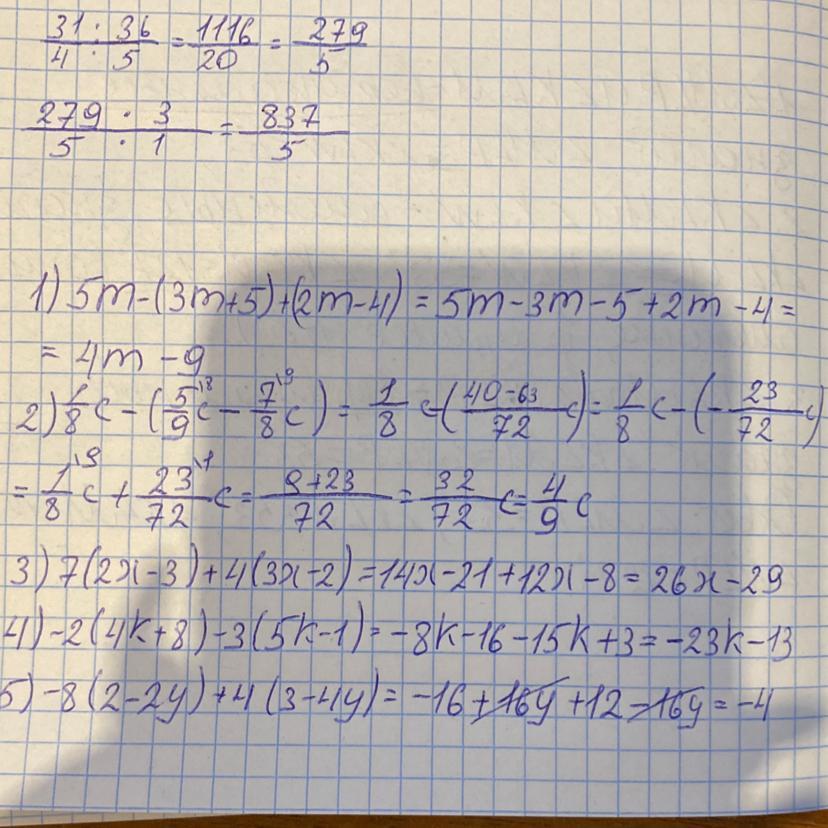 31 : 36 / 4 : 5 = 1116/20 = 279/5
279 · 3 / 5 · 1 = 837/5
1) 5m-(3m+5)+(2m-4) = 5m-3m-5+2m-4=
= 4m-9
2) 1/8 c - (5/9\8 c - 7/8\9 c) = 1/8 c-(40-63/72 c) = 1/8 c-(-23/72 c)
= 1/8\9 c + 23/72\1 c = 9+23/72 = 32/72 c = 4/9 c
3) 7(2x-3)+4(3x-2)=14x-21+12x-8=26x-29
4) -2(4k+8)-3(5k-1)=-8k-16-15k+3=-23k-13
5) -8(2-2y)+4(3-4y)=-16+16y+12-16y=-4